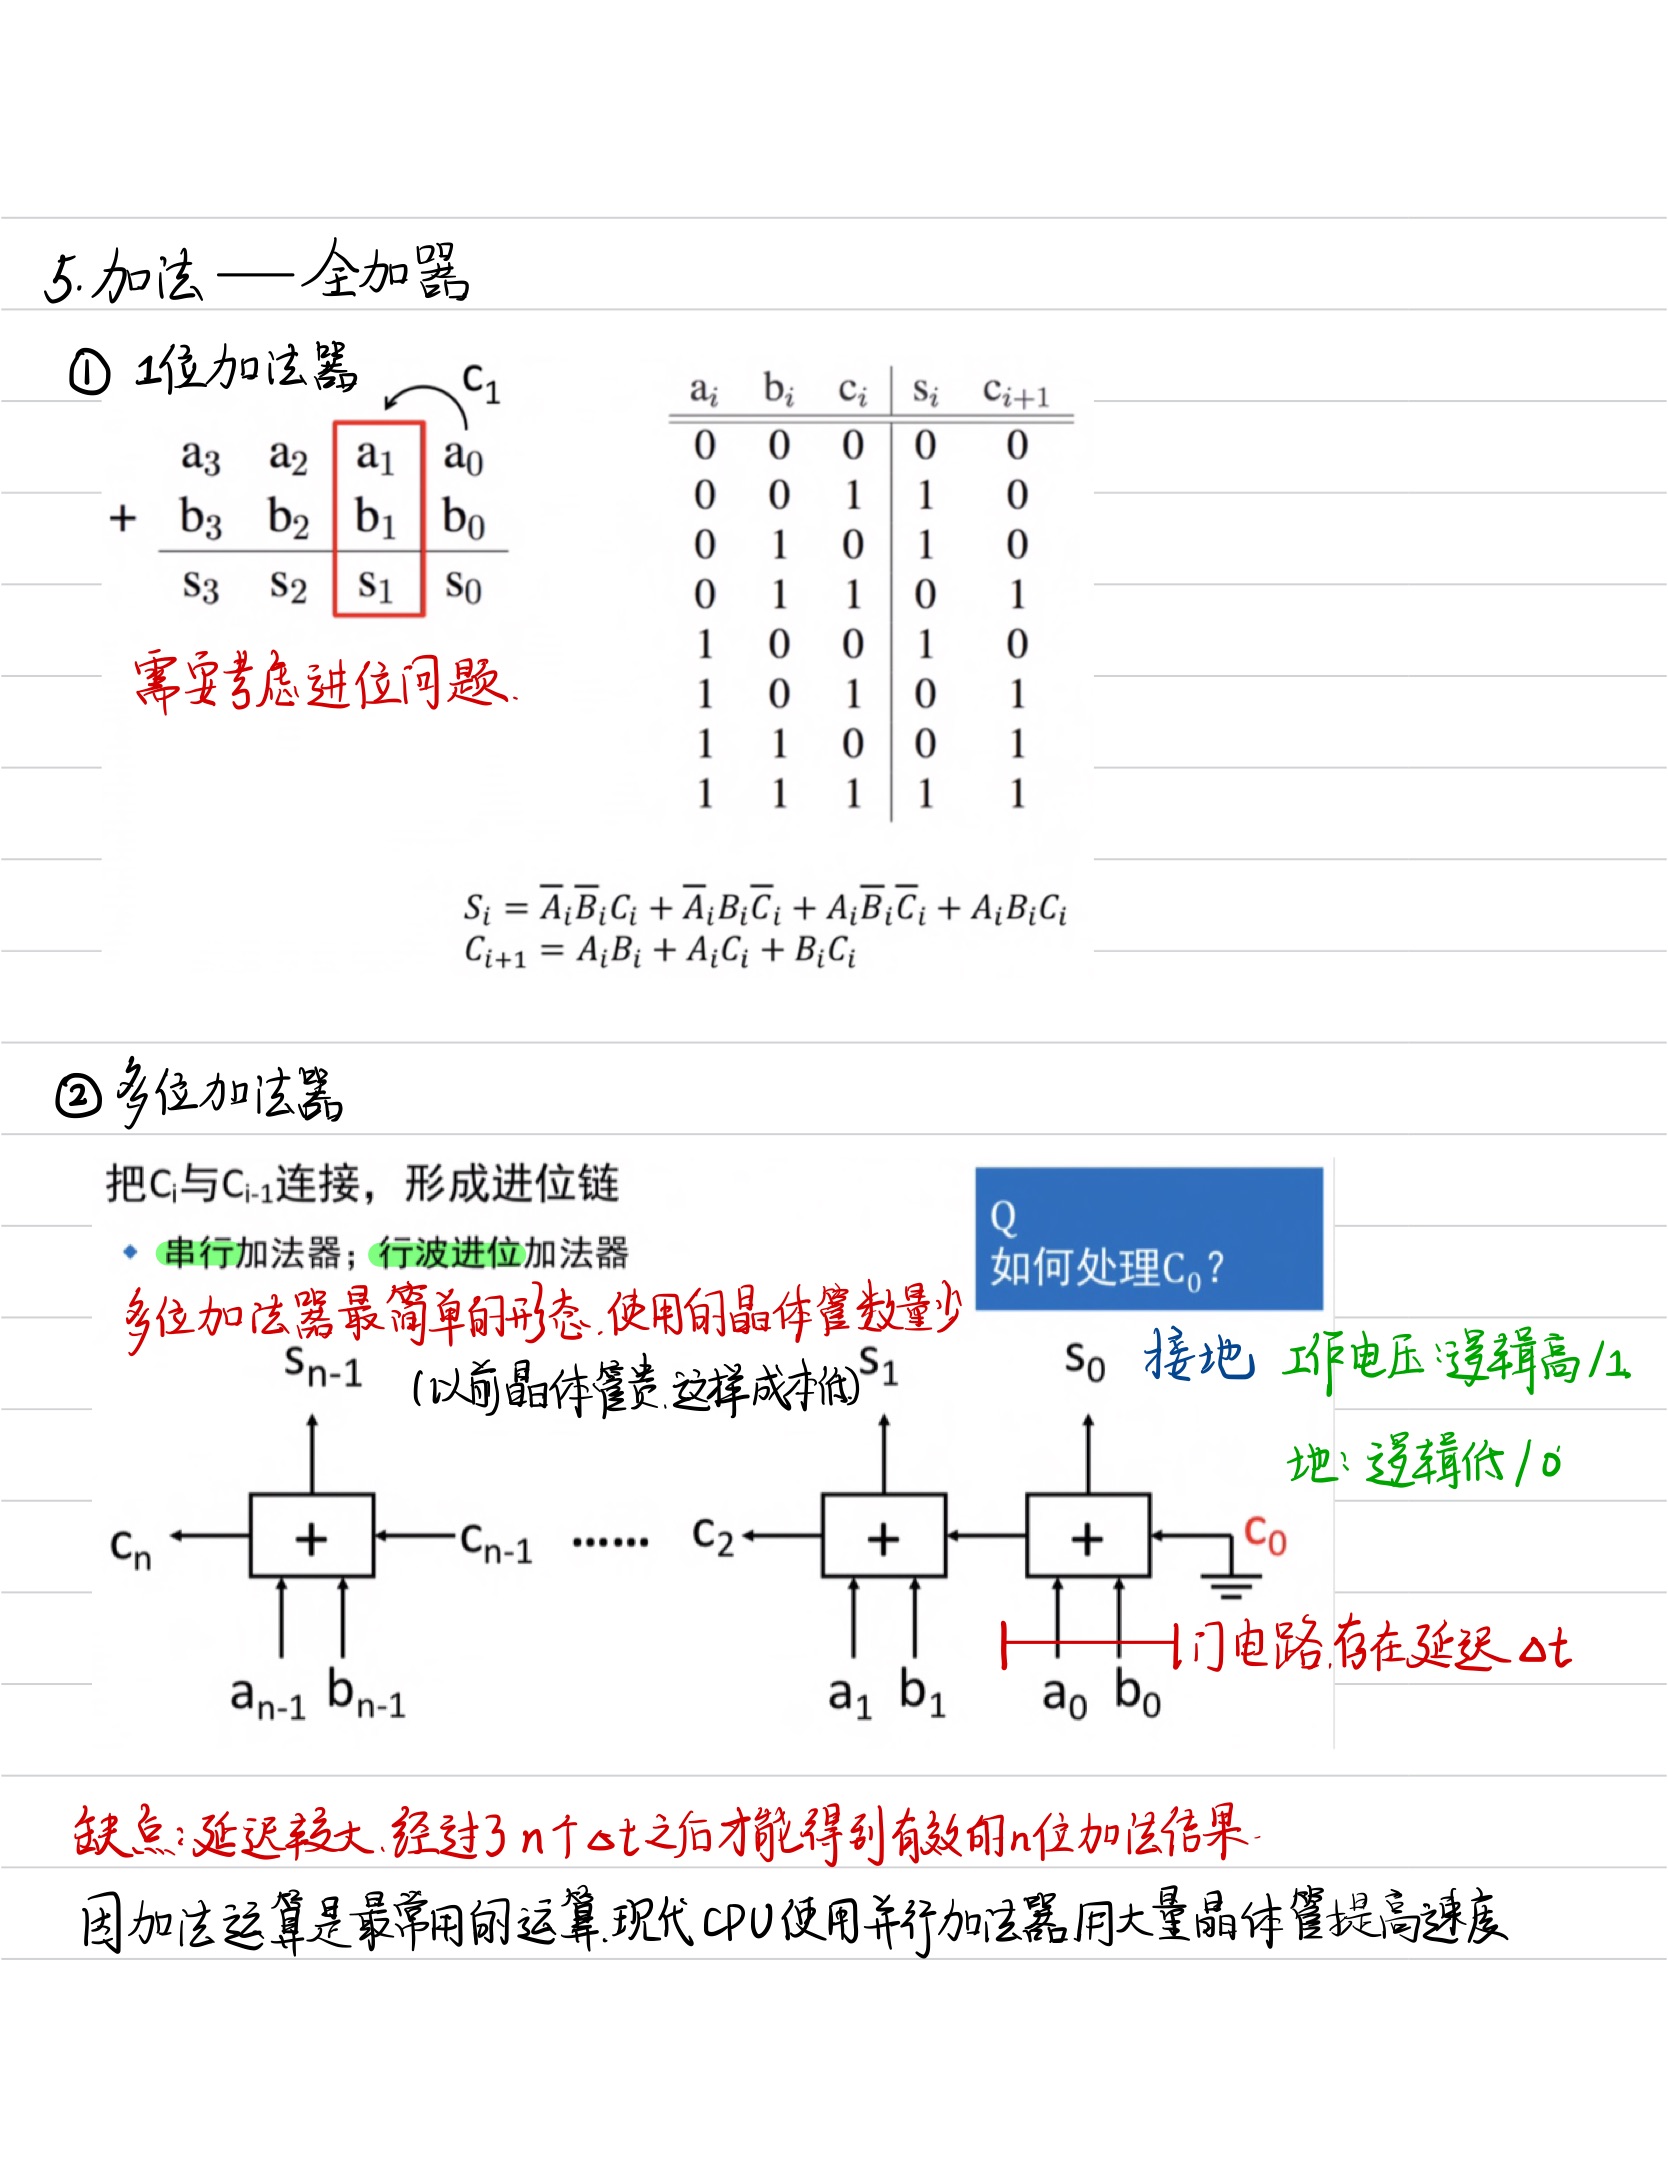 5.加法——全加器
① 1位加法器
c₁
a₃ a₂ a₁ a₀
+ b₃ b₂ b₁ b₀
s₃ s₂ s₁ s₀
需要考虑进位问题.
aᵢ bᵢ cᵢ sᵢ cᵢ₊₁
0 0 0 0 0
0 0 1 1 0
0 1 0 1 0
0 1 1 0 1
1 0 0 1 0
1 0 1 0 1
1 1 0 0 1
1 1 1 1 1
Sᵢ = A̅ᵢB̅ᵢCᵢ + A̅ᵢBᵢC̅ᵢ + AᵢB̅ᵢC̅ᵢ + AᵢBᵢCᵢ
Cᵢ₊₁ = AᵢBᵢ + AᵢCᵢ + BᵢCᵢ
② 多位加法器
把Cᵢ与Cᵢ₋₁连接，形成进位链
◆ 串行加法器；行波进位加法器
Q
如何处理C₀？
多位加法器最简单的形态.使用的晶体管数量少
(以前晶体管贵.这样成本低)
接地 工作电压:逻辑高/1
地:逻辑低/0
sₙ₋₁ s₁ s₀
cₙ + cₙ₋₁ …… c₂ + + c₀
门电路.存在延迟 Δt
aₙ₋₁ bₙ₋₁ a₁ b₁ a₀ b₀
缺点:延迟较大.经过了n个Δt之后才能得到有效的n位加法结果.
因加法运算是最常用的运算.现代CPU使用并行加法器用大量晶体管提高速度